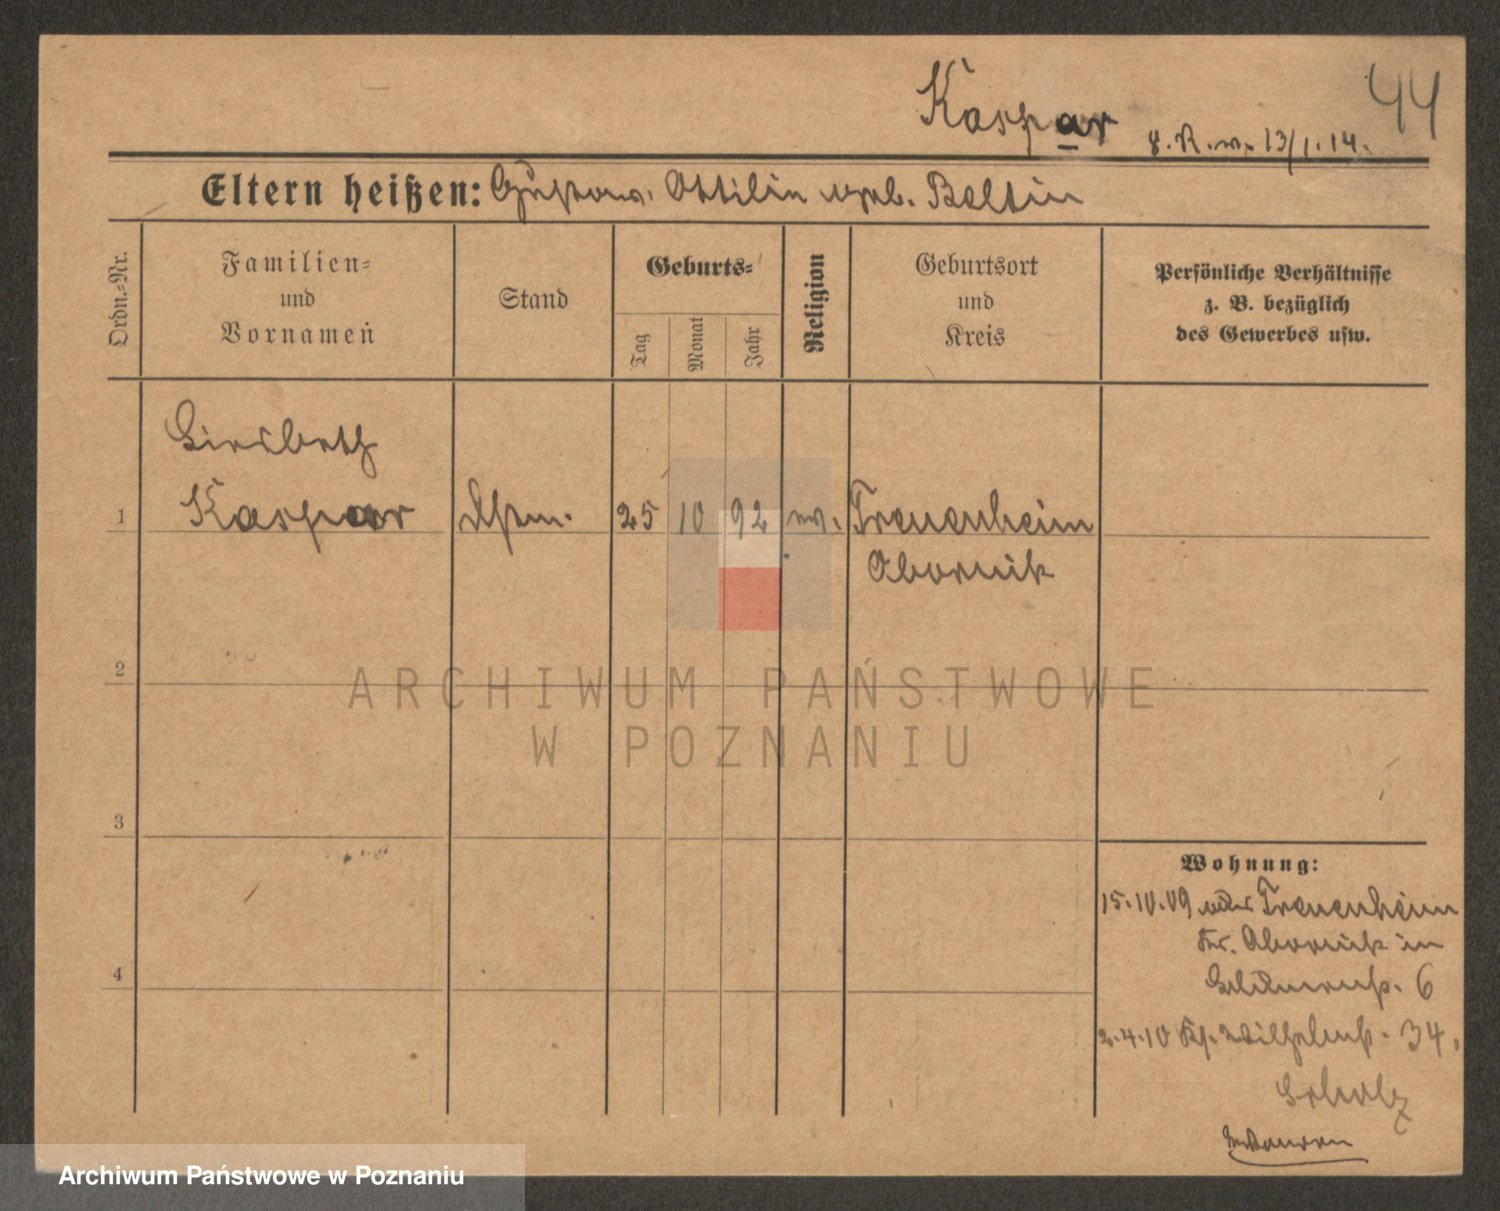 Kaspar
44
8. K. w. 13/1.14.
Eltern heißen: Gustav. Ottilie geb. Beltin
Ordn.-Nr.
Familien-
und
Vornamen
Stand
Geburts-
Tag
Monat
Jahr
Religion
Geburtsort
und
Kreis
Persönliche Verhältnisse
z. B. bezüglich
des Gewerbes usw.
1
Kaspar
25
10
92
ev.
Treuenheim
Obornik
2
ARCHIWUM PAŃSTWOWE
W POZNANIU
3
Wohnung:
15.10.09 Treuenheim
Kr. Obornik in
6
4
2.4.10 Wilhelmst. 34.
Scholz
Archiwum Państwowe w Poznaniu